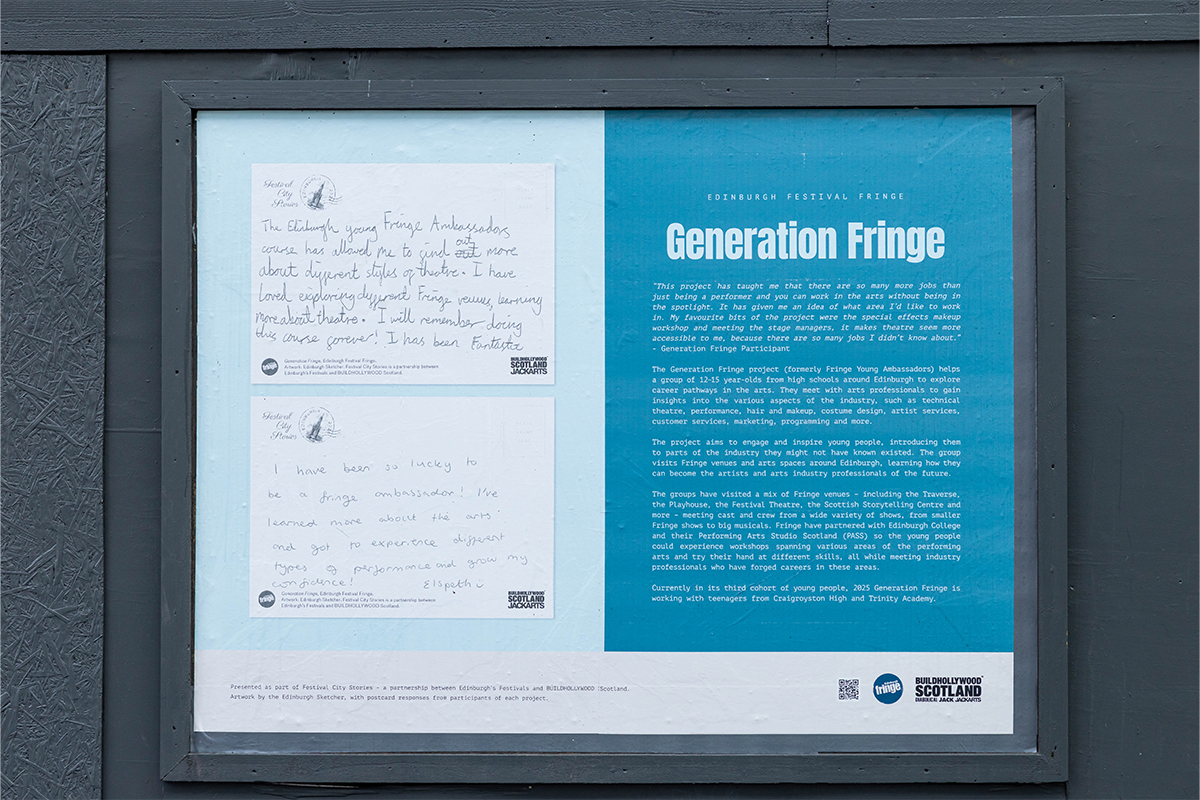 Festival
City
Stories
The Edinburgh young Fringe Ambassadors
course has allowed me to find out more
about different styles of theatre. I have
loved exploring different Fringe venues, learning
more about theatre. I will remember doing
this course forever! I has been Fantastic
fringe
Generation Fringe, Edinburgh Festival Fringe.
Artwork: Edinburgh Sketcher. Festival City Stories is a partnership between
Edinburgh's Festivals and BUILDHOLLYWOOD Scotland.
BUILDHOLLYWOOD
SCOTLAND
JACKARTS
Festival
City
Stories
I have been so lucky to
be a fringe ambassador! I've
learned more about the arts
and got to experience different
types of performance and grow my
confidence! Elspeth
fringe
Generation Fringe, Edinburgh Festival Fringe.
Artwork: Edinburgh Sketcher. Festival City Stories is a partnership between
Edinburgh's Festivals and BUILDHOLLYWOOD Scotland.
BUILDHOLLYWOOD
SCOTLAND
JACKARTS
EDINBURGH FESTIVAL FRINGE
Generation Fringe
"This project has taught me that there are so many more jobs than
just being a performer and you can work in the arts without being in
the spotlight. It has given me an idea of what area I'd like to work
in. My favourite bits of the project were the special effects makeup
workshop and meeting the stage managers, it makes theatre seem more
accessible to me, because there are so many jobs I didn't know about."
- Generation Fringe Participant
The Generation Fringe project (formerly Fringe Young Ambassadors) helps
a group of 12-15 year-olds from high schools around Edinburgh to explore
career pathways in the arts. They meet with arts professionals to gain
insights into the various aspects of the industry, such as technical
theatre, performance, hair and makeup, costume design, artist services,
customer services, marketing, programming and more.
The project aims to engage and inspire young people, introducing them
to parts of the industry they might not have known existed. The group
visits Fringe venues and arts spaces around Edinburgh, learning how they
can become the artists and arts industry professionals of the future.
The groups have visited a mix of Fringe venues - including the Traverse,
the Playhouse, the Festival Theatre, the Scottish Storytelling Centre and
more - meeting cast and crew from a wide variety of shows, from smaller
Fringe shows to big musicals. Fringe have partnered with Edinburgh College
and their Performing Arts Studio Scotland (PASS) so the young people
could experience workshops spanning various areas of the performing
arts and try their hand at different skills, all while meeting industry
professionals who have forged careers in these areas.
Currently in its third cohort of young people, 2025 Generation Fringe is
working with teenagers from Craigroyston High and Trinity Academy.
Presented as part of Festival City Stories - a partnership between Edinburgh's Festivals and BUILDHOLLYWOOD Scotland.
Artwork by the Edinburgh Sketcher, with postcard responses from participants of each project.
fringe
BUILDHOLLYWOOD
SCOTLAND
DIABOLICAL JACK JACKARTS